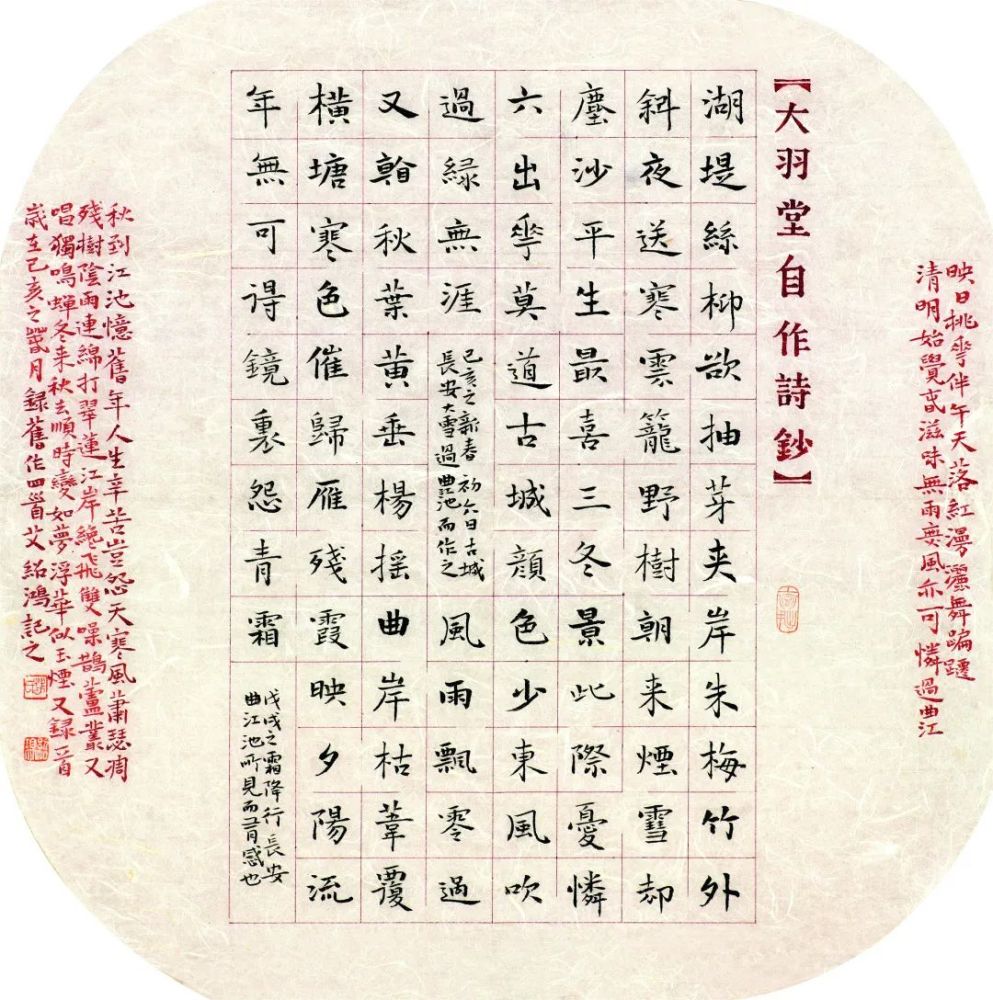 映日桃華伴午天落紅漫灑舞蹁躚
清明始覺春滋味無雨無風亦可憐過曲江
【大羽堂自作詩鈔】
湖堤絲柳欲抽芽夾岸朱梅竹外
斜夜送寒雲籠野樹朝来煙雪却
塵沙平生最喜三冬景此際憂憐
六出華莫道古城顏色少東風吹
過緑無涯
己亥之新春初六日古城
長安大雪過曲江池而作之
風雨飄零過
又翰秋葉黄垂楊摇曲岸枯葦覆
横塘寒色催歸雁殘霞映夕陽流
年無可得鏡裏怨青霜
戊戌之霜降行長安
曲江池所見而有感也
秋到江池憶舊年人生辛苦豈怨天寒風蕭瑟凋
殘樹陰雨連綿打翠蓮江岸纔飛雙噪鵲蘆叢又
唱獨鳴蟬冬来秋去順時變如夢浮華似玉煙又録首
歲在己亥之月録舊作四首艾紹鴻記之